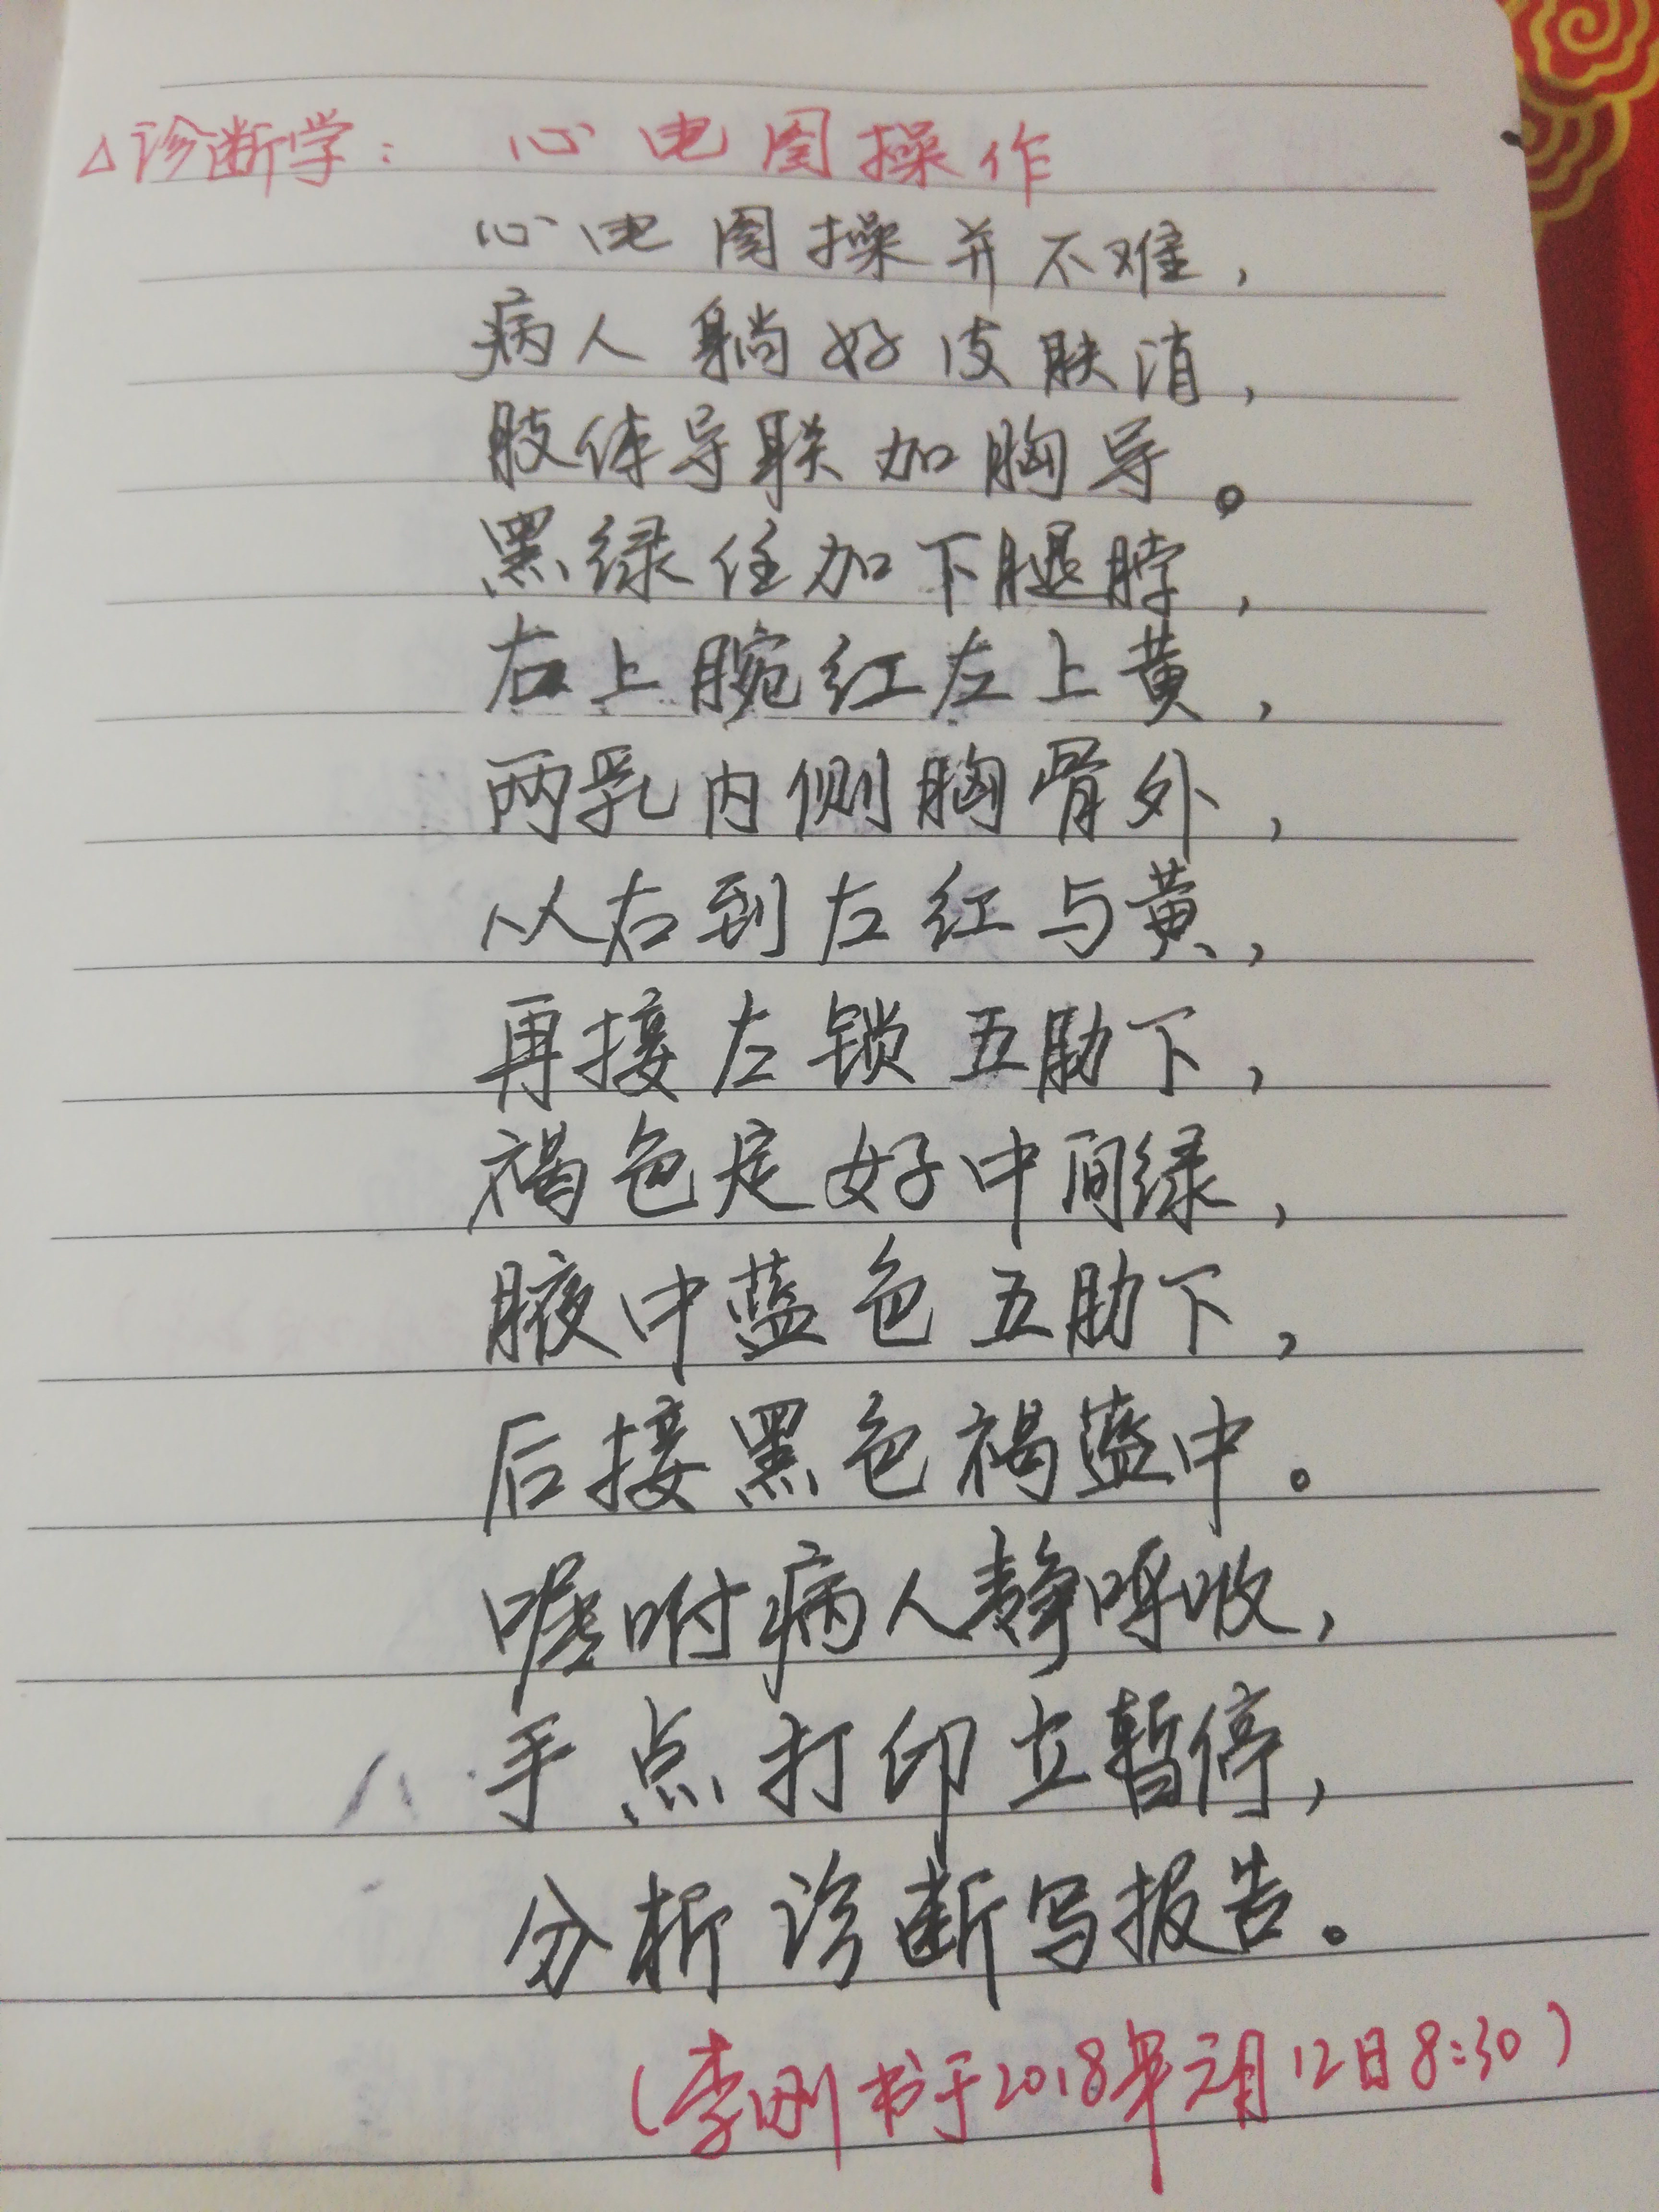 △诊断学：心电图操作
心电图操并不难，
病人躺好皮肤消，
肢体导联加胸导。
黑绿往加下腿脖，
右上腕红左上黄，
两乳内侧胸骨外，
从右到左红与黄，
再接左锁五肋下，
褐色定好中间绿，
腋中蓝色五肋下，
后接黑色褐蓝中。
嘱咐病人静呼吸，
手点打印立暂停，
分析诊断写报告。
（李刚书于2018年元月12日8:30）